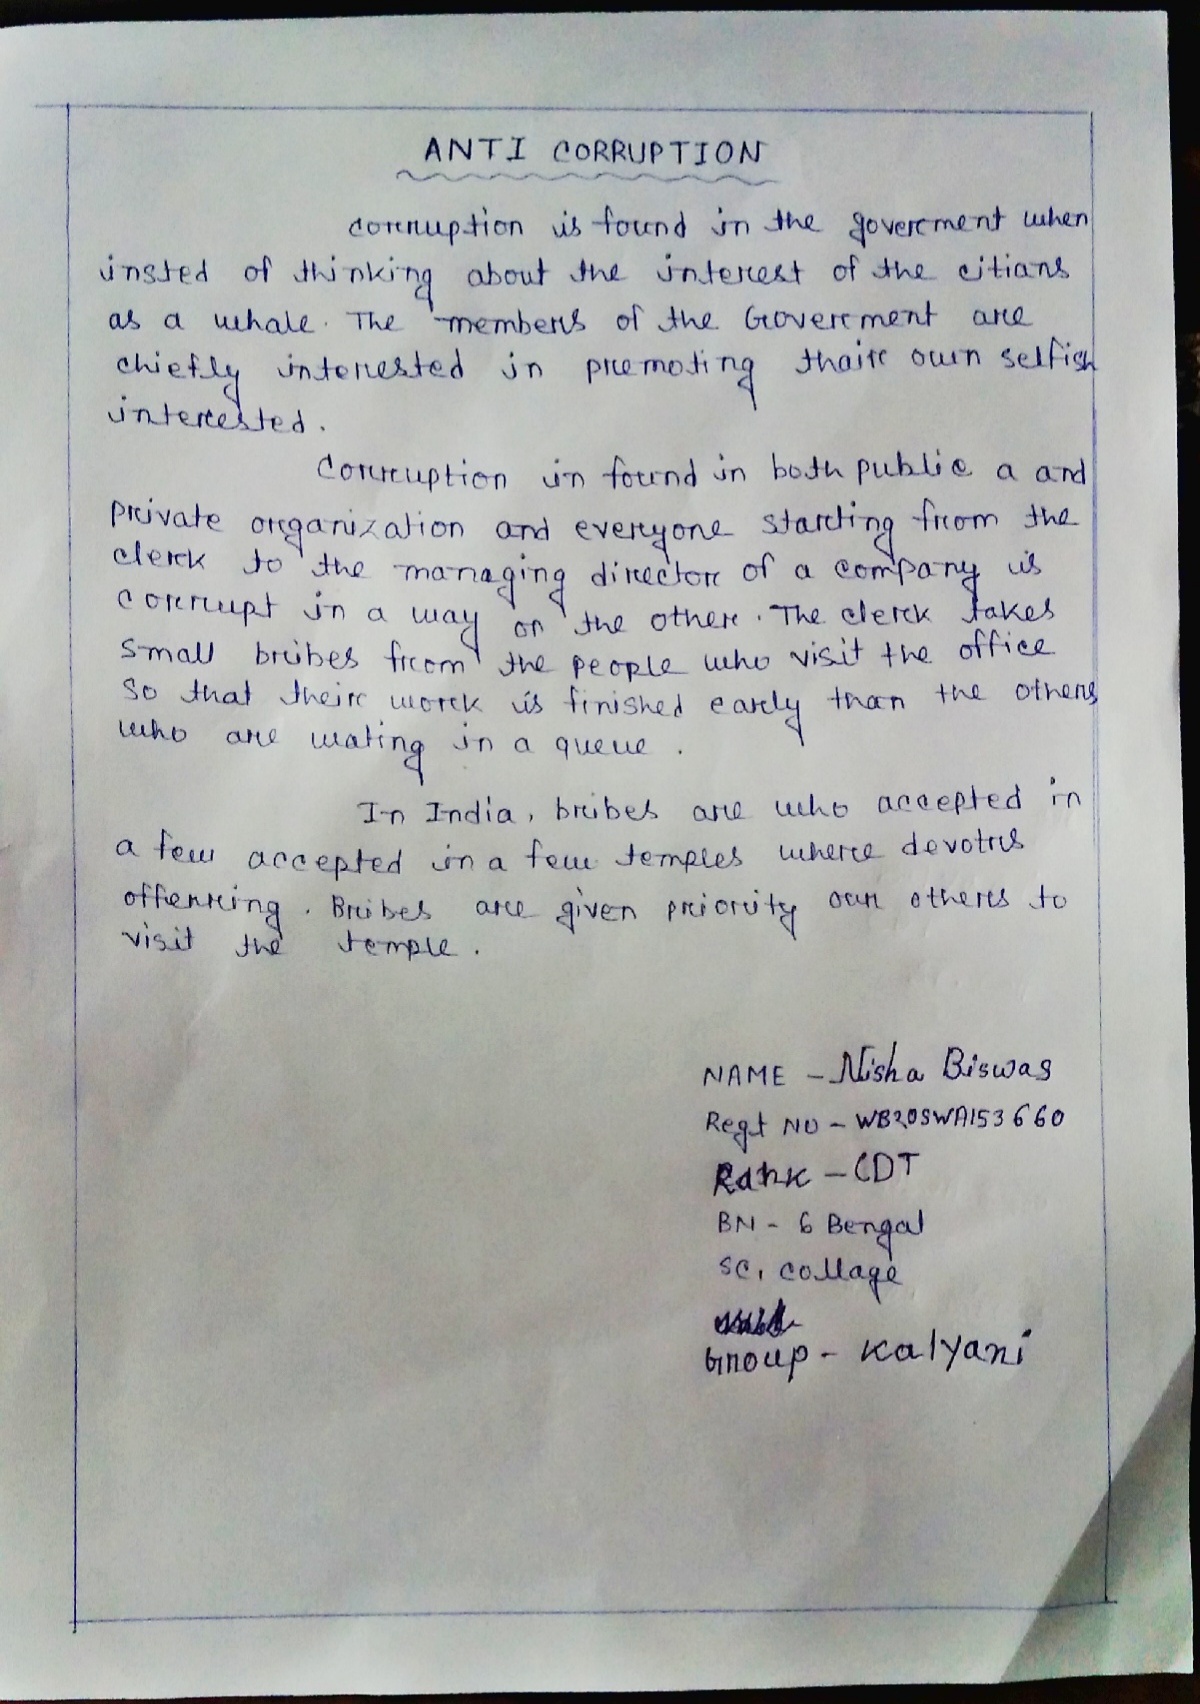 ANTI CORRUPTION
corruption is found in the goverment when
insted of thinking about the interest of the citians
as a whale. The members of the Goverment are
chiefly interested in premoting thair own selfish
interested.
Corruption in found in both public a and
private organization and everyone starting from the
clerk to the managing director of a company is
corrupt in a way or the other. The clerk takes
small bribes from the people who visit the office
so that their work is finished early than the others
who are wating in a queue.
In India, bribes are who accepted in
a few accepted in a few temples where devotrs
offerring. Bribes are given priority our others to
visit the temple.
NAME - Nisha Biswas
Regt NO - WB20SWA153660
Rank - CDT
BN - 6 Bengal
SC, collage
Group - Kalyani